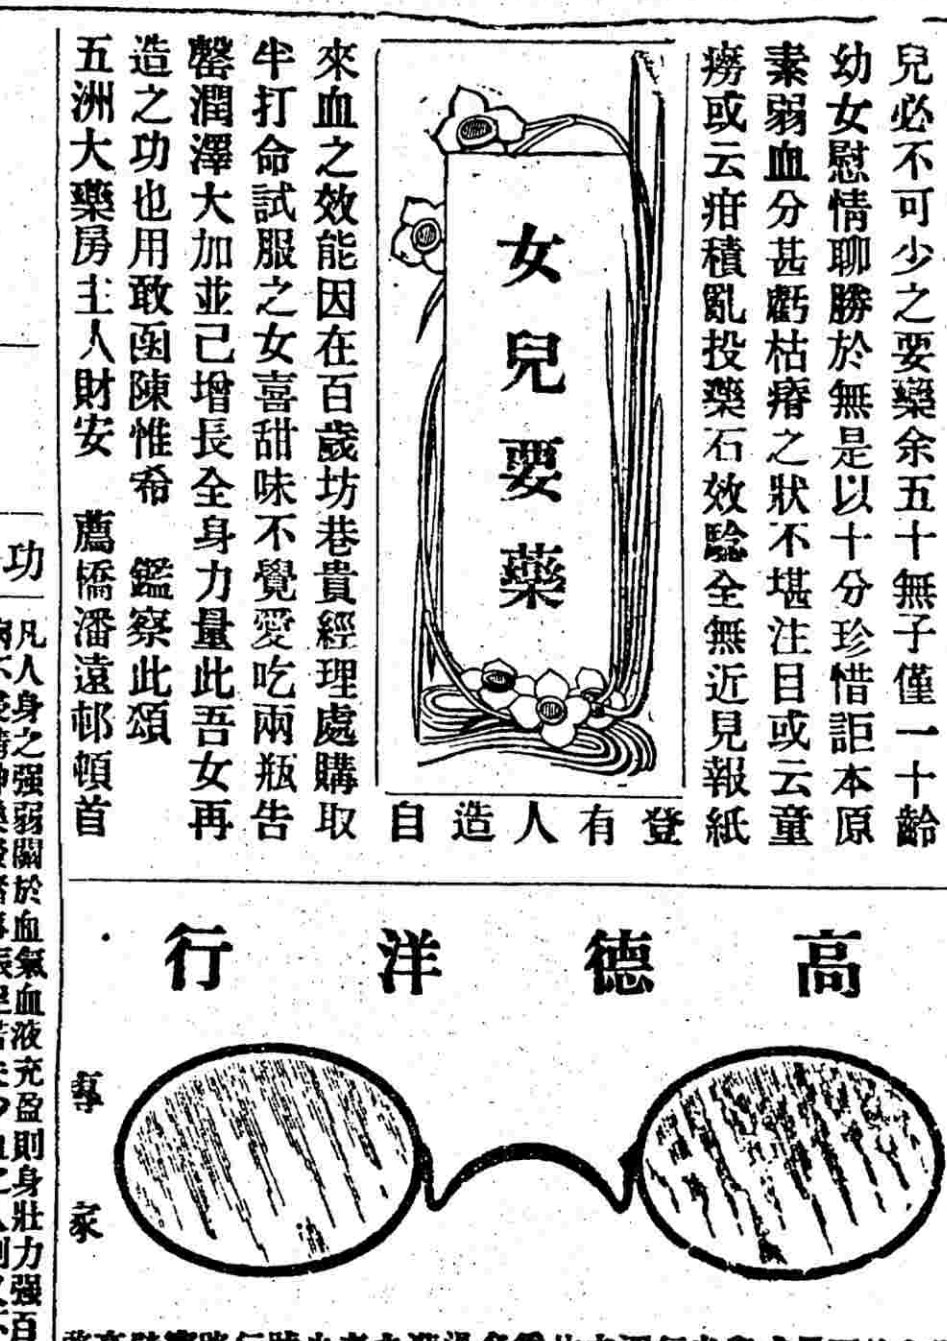 兒必不可少之要藥余五十無子僅一十齡
幼女慰情聊勝於無是以十分珍惜詎本原
素弱血分甚虧枯瘠之狀不堪注目或云童
癆或云疳積亂投藥石效驗全無近見報紙
女兒要藥
登有人造自
來血之效能因在百歲坊巷貴經理處購取
半打命試服之女喜甜味不覺愛吃兩瓶告
罄潤澤大加並己增長全身力量此吾女再
造之功也用敢函陳惟希 鑑察此頌
五洲大藥房主人財安 薦橋潘遠邨頓首
高德洋行
專家
功
凡人身之强弱關於血氣血液充盈則身壯力强百